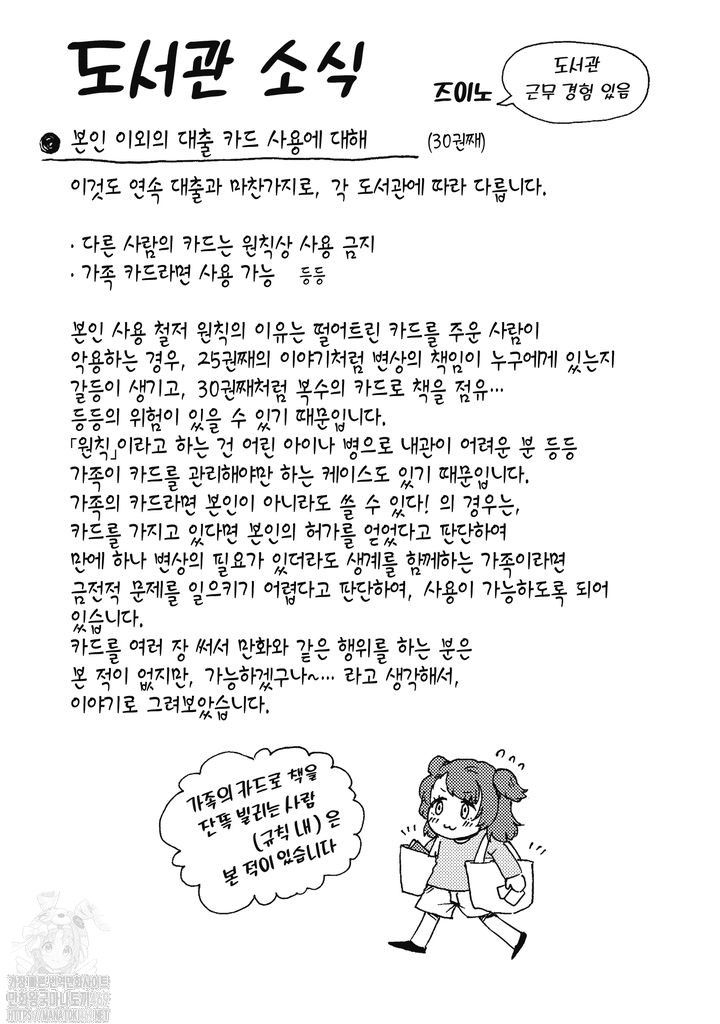 도서관 소식
즈이노
도서관
근무 경험 있음
본인 이외의 대출 카드 사용에 대해 (30권째)
이것도 연속 대출과 마찬가지로, 각 도서관에 따라 다릅니다.
· 다른 사람의 카드는 원칙상 사용 금지
· 가족 카드라면 사용 가능 등등
본인 사용 철저 원칙의 이유는 떨어트린 카드를 주운 사람이
악용하는 경우, 25권째의 이야기처럼 변상의 책임이 누구에게 있는지
갈등이 생기고, 30권째처럼 복수의 카드로 책을 점유…
등등의 위험이 있을 수 있기 때문입니다.
「원칙」이라고 하는 건 어린 아이나 병으로 내관이 어려운 분 등등
가족이 카드를 관리해야만 하는 케이스도 있기 때문입니다.
가족의 카드라면 본인이 아니라도 쓸 수 있다! 의 경우는,
카드를 가지고 있다면 본인의 허가를 얻었다고 판단하여
만에 하나 변상의 필요가 있더라도 생계를 함께하는 가족이라면
금전적 문제를 일으키기 어렵다고 판단하여, 사용이 가능하도록 되어
있습니다.
카드를 여러 장 써서 만화와 같은 행위를 하는 분은
본 적이 없지만, 가능하겠구나~… 라고 생각해서,
이야기로 그려보았습니다.
가족의 카드로 책을
잔뜩 빌리는 사람
(규칙 내)은
본 적이 있습니다
가장 빠른 번역만화사이트
만화왕국마나토끼